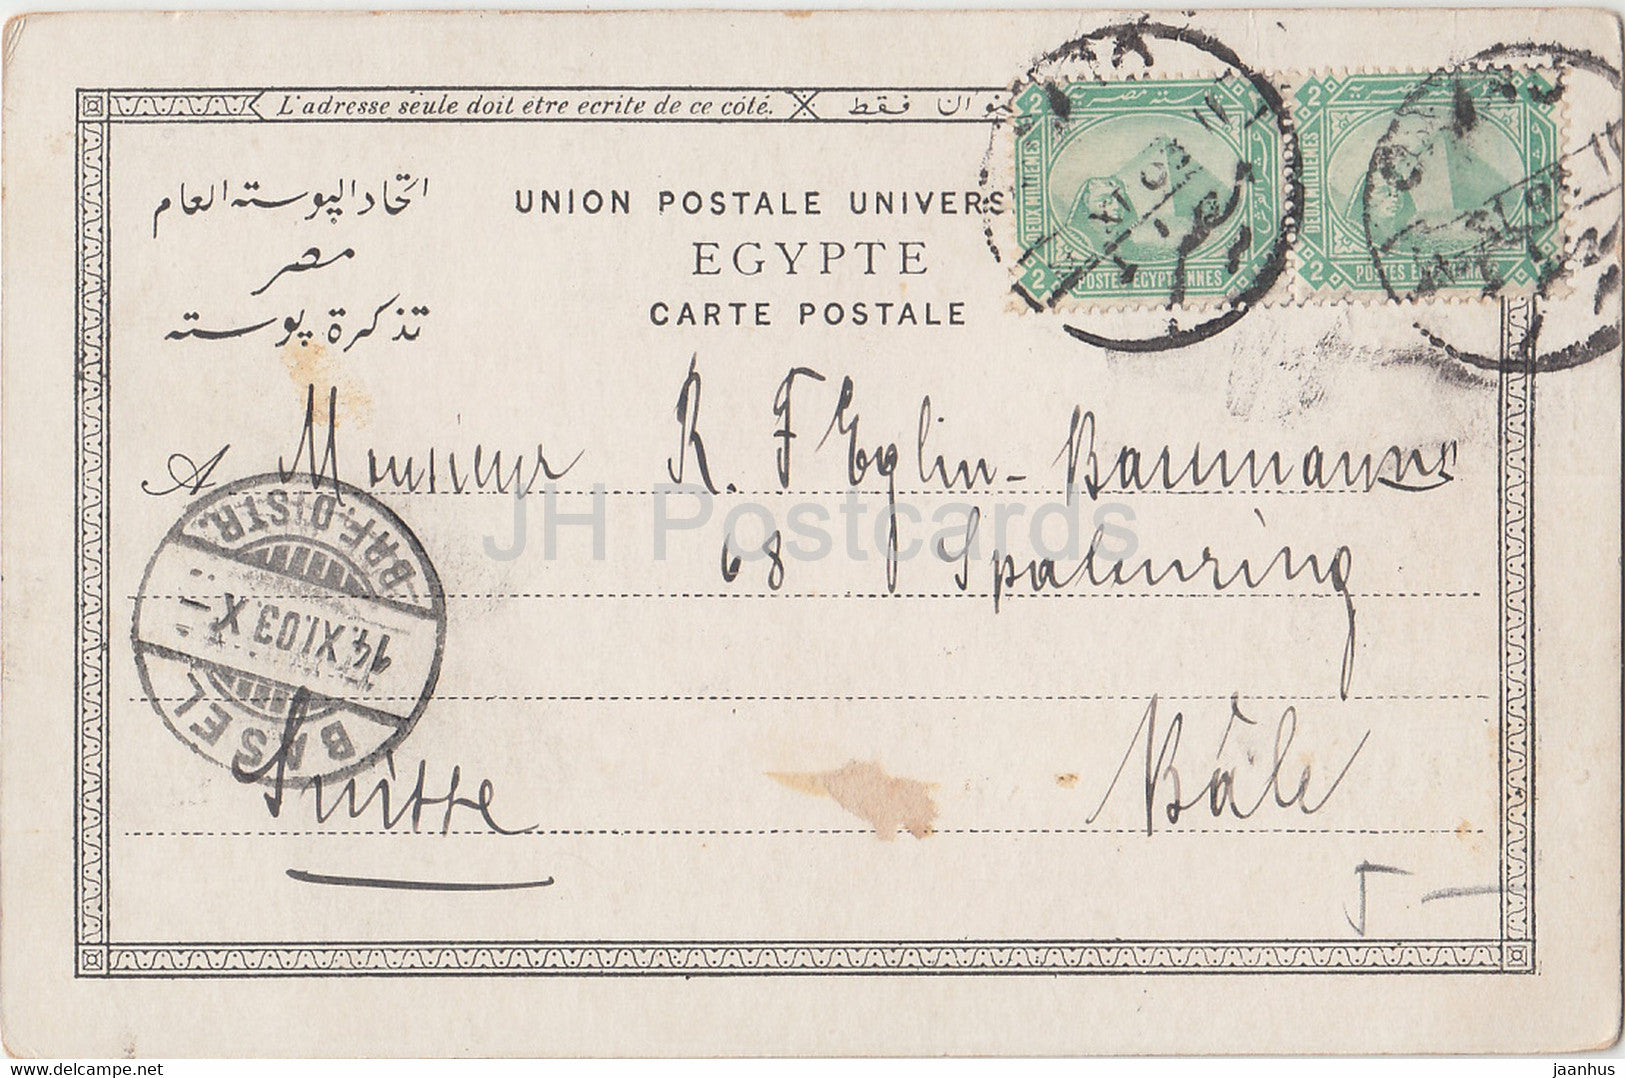 L'adresse seule doit être ecrite de ce côté.
فقط
اتحاد البوسته العام
UNION POSTALE UNIVERS
مصر
EGYPTE
تذكرة بوسته
CARTE POSTALE
2 2
DEUX MILLIEMES
POSTES EGYPTIENNES
2 2
DEUX MILLIEMES
A Monsieur R. F Eglin-Baumann
68 Spalenring
Bâle
Suisse
BASEL
14.XI.03.X
BRF. DISTR.
5 —
JH Postcards
delcampe.net
jaanhus